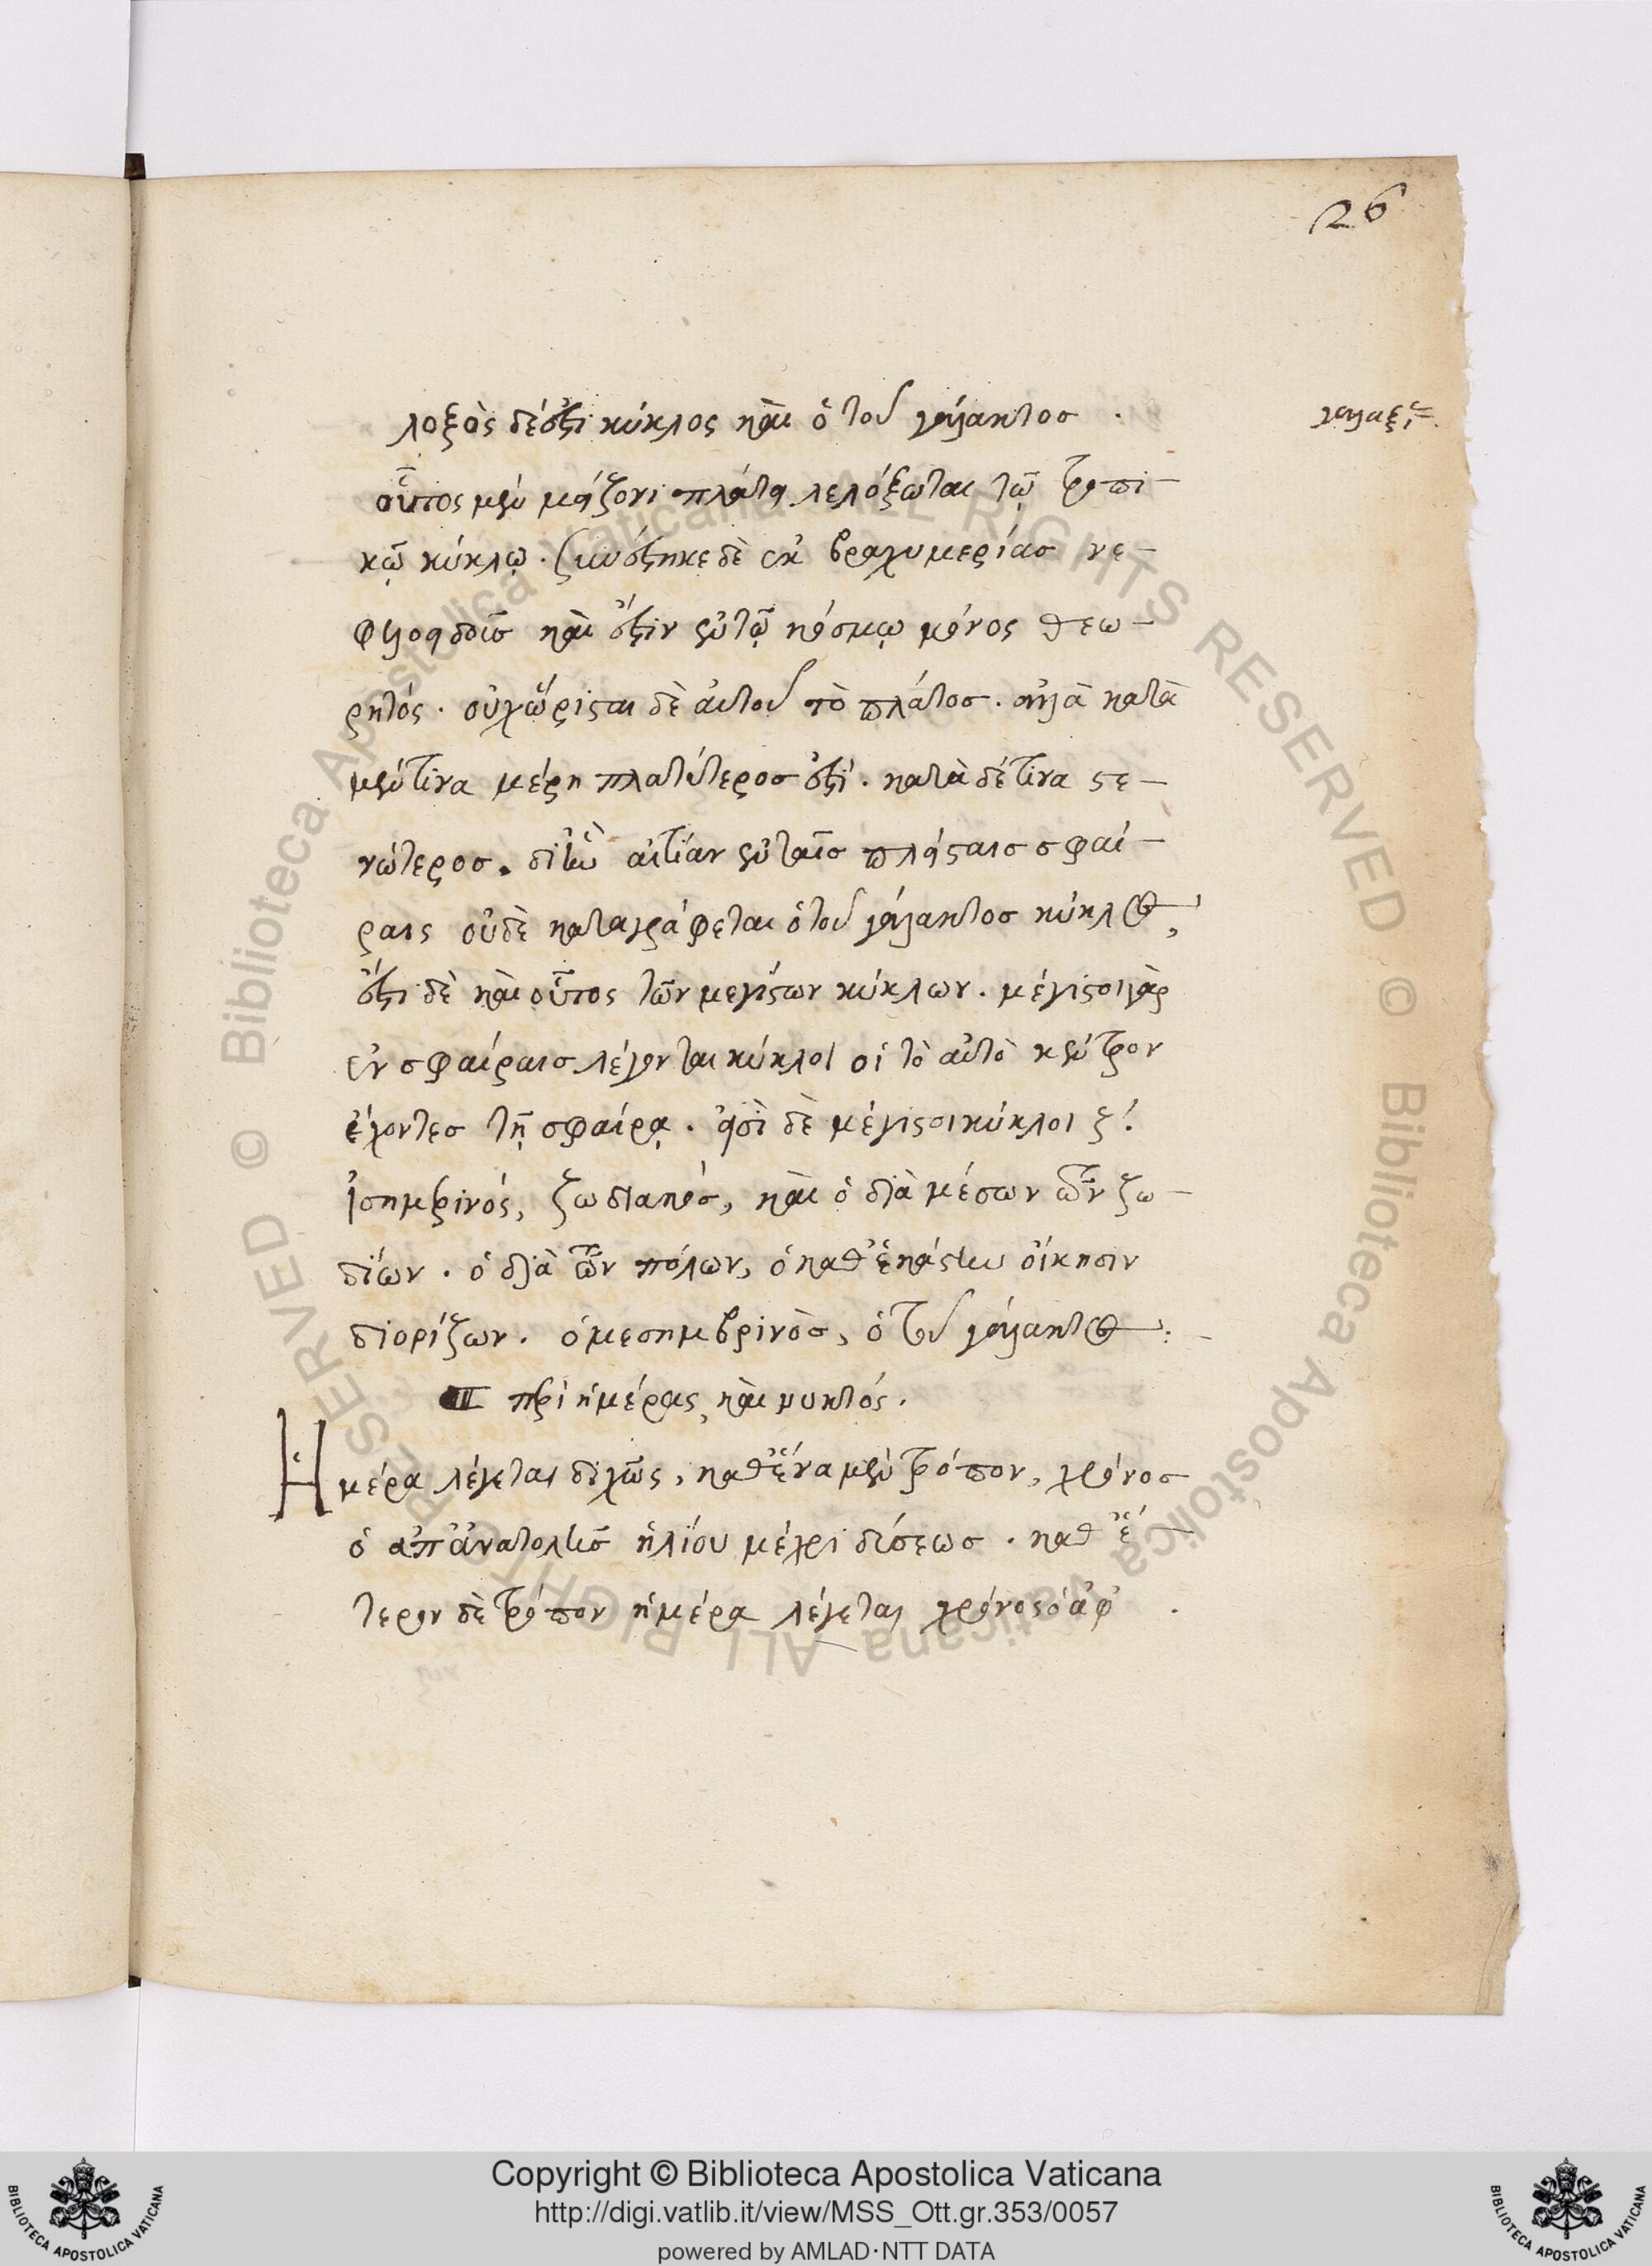 26
λοξὸς δέ ἐστι κύκλος καὶ ὁ τοῦ γάλακτος .
γαλαξί
οὗτος μὲν μείζονι πλάτει λελόξωται τῷ τροπι-
κῷ κύκλῳ . συνέστηκε δὲ ἐκ βραχυμερίας νε-
φελοειδοῖς καὶ ἔστιν ἐν τῷ κόσμῳ μόνος θεω-
ρητός . οὐχ ὥρισται δὲ αὐτοῦ τὸ πλάτος . ἀλλὰ κατὰ
μέν τινα μέρη πλατύτερος ἐστί . κατὰ δέ τινα στε-
νώτερος . δι ἣν αἰτίαν ἐν ταῖς πλείσταις σφαί-
ραις οὐδὲ καταγράφεται ὁ τοῦ γάλακτος κύκλος,
ἔστι δὲ καὶ οὗτος τῶν μεγίστων κύκλων . μέγιστοι γὰρ
ἐν σφαίραις λέγονται κύκλοι οἱ τὸ αὐτὸ κέντρον
ἔχοντες τῇ σφαίρᾳ . εἰσὶ δὲ μέγιστοι κύκλοι ζ.
ἰσημερινός, ζωδιακός, καὶ ὁ διὰ μέσων τῶν ζω-
δίων . ὁ διὰ τῶν πόλων, ὁ καθ ἑκάστην οἴκησιν
διορίζων . ὁ μεσημβρινὸς, ὁ τοῦ γάλακτος :-
περὶ ἡμέρας καὶ νυκτός .
Ἡμέρα λέγεται διχῶς, καθ ἕνα μὲν τρόπον, χρόνος
ὁ ἀπ ἀνατολῆς ἡλίου μέχρι δύσεως . καθ ἕ-
τερον δὲ τρόπον ἡμέρα λέγεται χρόνος ὁ ἀφ .
Copyright © Biblioteca Apostolica Vaticana
http://digi.vatlib.it/view/MSS_Ott.gr.353/0057
powered by AMLAD·NTT DATA